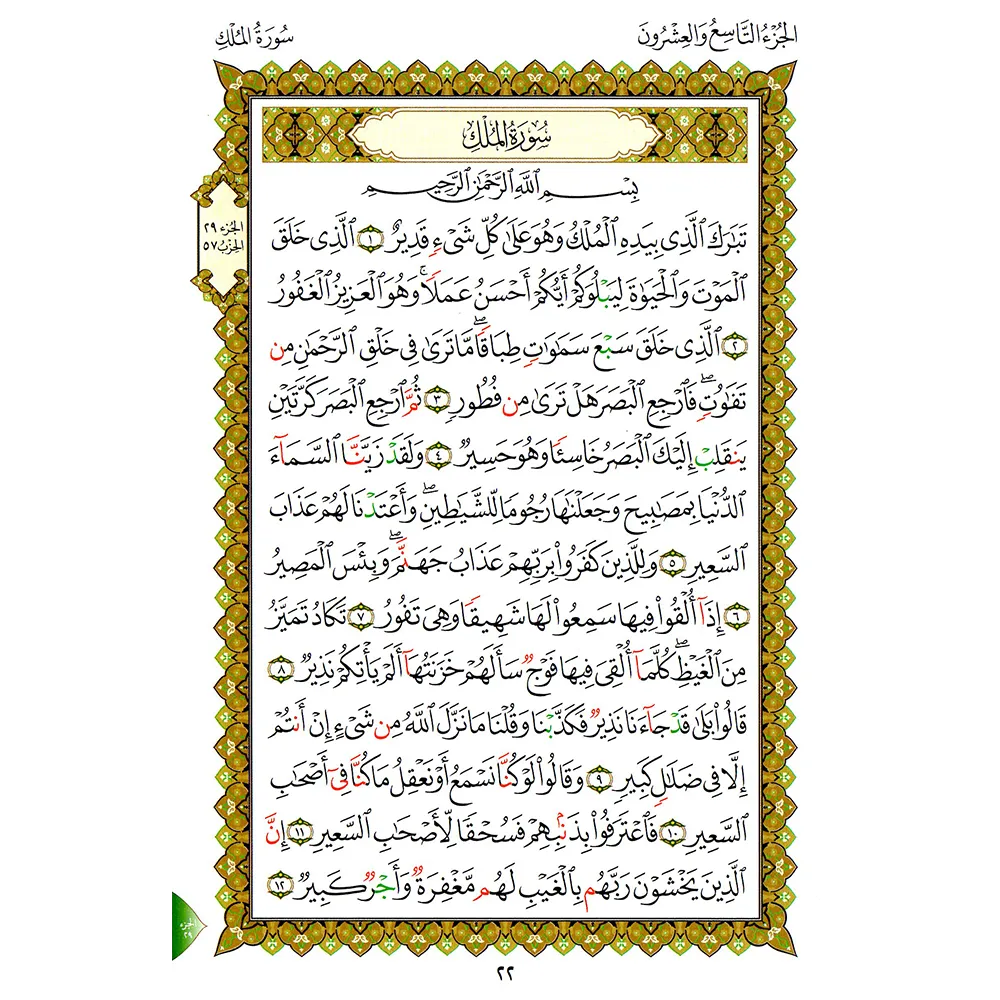 الجُزْءُ التَّاسِعُ وَالعِشْرُونَ
سُورَةُ المُلْكِ
سُورَةُ المُلْكِ
بِسْمِ ٱللَّهِ ٱلرَّحْمَٰنِ ٱلرَّحِيمِ
الجزء ٢٩
الحزب ٥٧
تَبَٰرَكَ ٱلَّذِى بِيَدِهِ ٱلْمُلْكُ وَهُوَ عَلَىٰ كُلِّ شَىْءٍ قَدِيرٌ ١ ٱلَّذِى خَلَقَ
ٱلْمَوْتَ وَٱلْحَيَوٰةَ لِيَبْلُوَكُمْ أَيُّكُمْ أَحْسَنُ عَمَلًا ۚ وَهُوَ ٱلْعَزِيزُ ٱلْغَفُورُ
٢ ٱلَّذِى خَلَقَ سَبْعَ سَمَٰوَٰتٍ طِبَاقًا ۖ مَّا تَرَىٰ فِى خَلْقِ ٱلرَّحْمَٰنِ مِن
تَفَٰوُتٍ ۖ فَٱرْجِعِ ٱلْبَصَرَ هَلْ تَرَىٰ مِن فُطُورٍ ٣ ثُمَّ ٱرْجِعِ ٱلْبَصَرَ كَرَّتَيْنِ
يَنقَلِبْ إِلَيْكَ ٱلْبَصَرُ خَاسِئًا وَهُوَ حَسِيرٌ ٤ وَلَقَدْ زَيَّنَّا ٱلسَّمَآءَ
ٱلدُّنْيَا بِمَصَٰبِيحَ وَجَعَلْنَٰهَا رُجُومًا لِّلشَّيَٰطِينِ ۖ وَأَعْتَدْنَا لَهُمْ عَذَابَ
ٱلسَّعِيرِ ٥ وَلِلَّذِينَ كَفَرُوا۟ بِرَبِّهِمْ عَذَابُ جَهَنَّمَ ۖ وَبِئْسَ ٱلْمَصِيرُ
٦ إِذَآ أُلْقُوا۟ فِيهَا سَمِعُوا۟ لَهَا شَهِيقًا وَهِىَ تَفُورُ ٧ تَكَادُ تَمَيَّزُ
مِنَ ٱلْغَيْظِ ۖ كُلَّمَآ أُلْقِىَ فِيهَا فَوْجٌ سَأَلَهُمْ خَزَنَتُهَآ أَلَمْ يَأْتِكُمْ نَذِيرٌ ٨
قَالُوا۟ بَلَىٰ قَدْ جَآءَنَا نَذِيرٌ فَكَذَّبْنَا وَقُلْنَا مَا نَزَّلَ ٱللَّهُ مِن شَىْءٍ إِنْ أَنتُمْ
إِلَّا فِى ضَلَٰلٍ كَبِيرٍ ٩ وَقَالُوا۟ لَوْ كُنَّا نَسْمَعُ أَوْ نَعْقِلُ مَا كُنَّا فِىٓ أَصْحَٰبِ
ٱلسَّعِيرِ ١٠ فَٱعْتَرَفُوا۟ بِذَنۢبِهِمْ فَسُحْقًا لِّأَصْحَٰبِ ٱلسَّعِيرِ ١١ إِنَّ
ٱلَّذِينَ يَخْشَوْنَ رَبَّهُم بِٱلْغَيْبِ لَهُم مَّغْفِرَةٌ وَأَجْرٌ كَبِيرٌ ١٢
الجزء
٢٩
٢٢